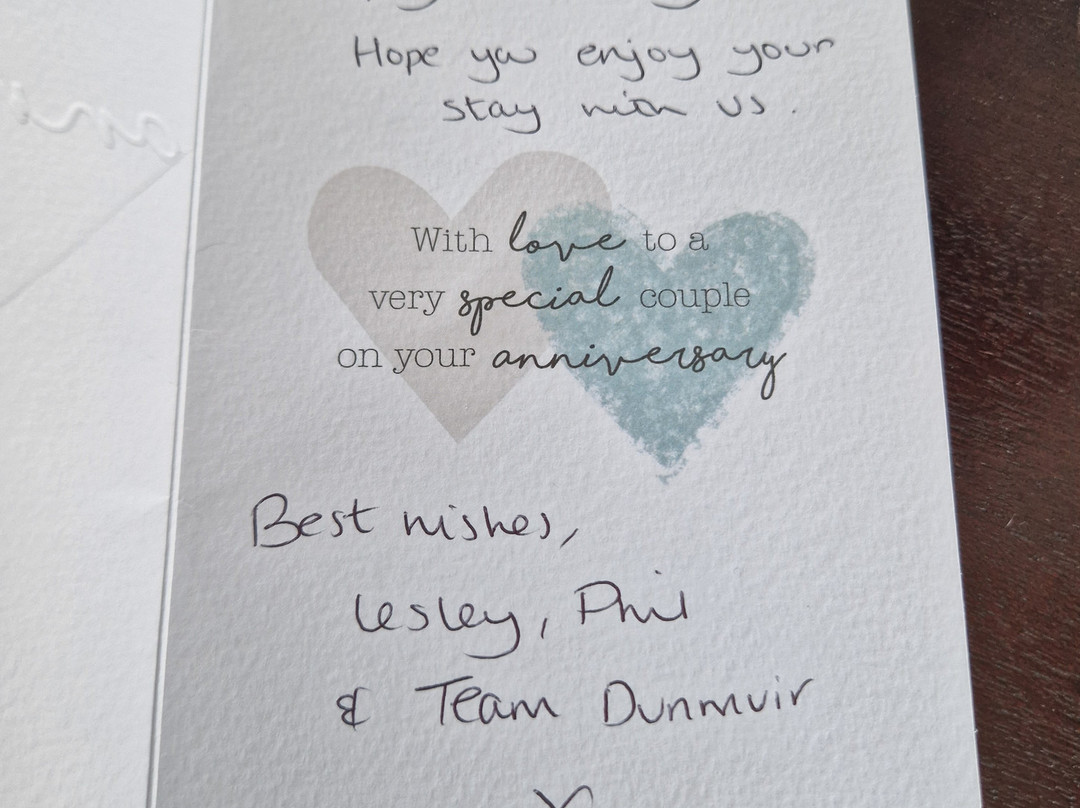 Hope you enjoy your
stay with us.
With love to a
very special couple
on your anniversary
Best wishes,
Lesley, Phil
& Team Dunmuir
X